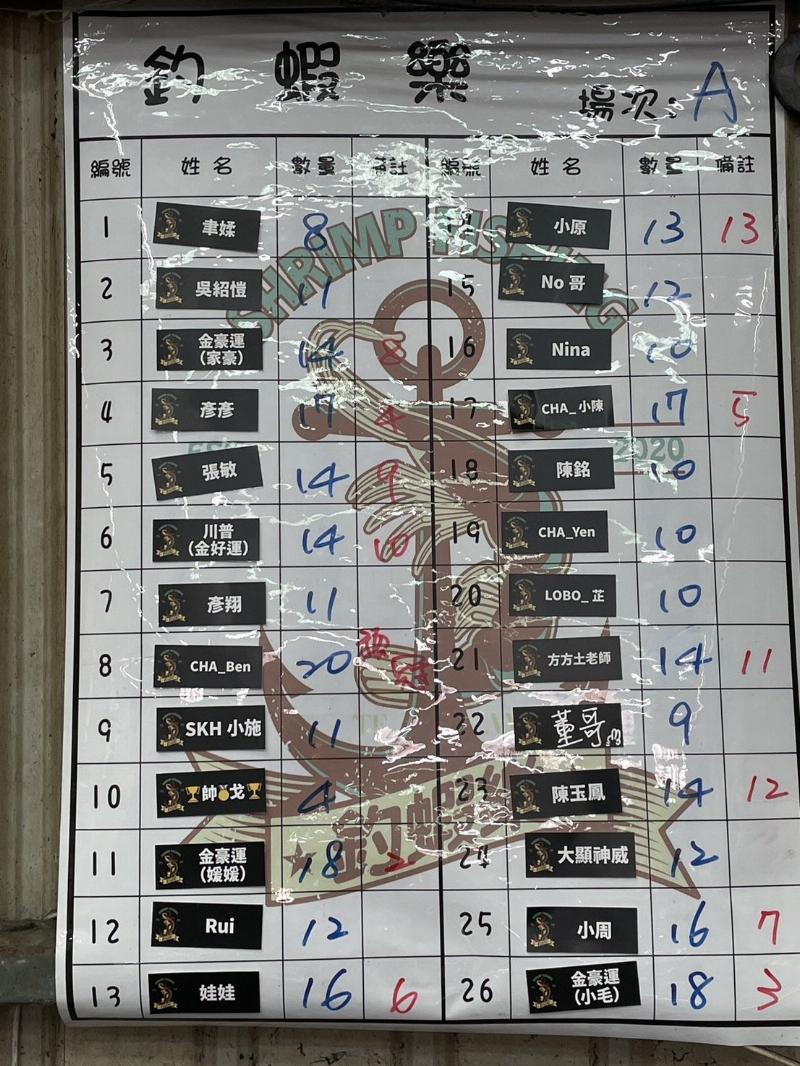 釣 蝦 樂
場次: A
編號 姓名 數量 備註 編號 姓名 數量 備註
1 聿媃 8 14 小原 13 13
2 吳紹愷 11 15 No 哥 12
3 金豪運 (家豪) 14 8 16 Nina 10
4 彥彥 17 4 17 CHA_小陳 17 5
5 張敏 14 9 18 陳銘 10
6 川普 (金好運) 14 10 19 CHA_Yen 10
7 彥翔 11 20 LOBO_芷 10
8 CHA_Ben 20 21 方方土老師 14 11
9 SKH 小施 11 22 董哥 9
10 帥戈 4 23 陳玉鳳 14 12
11 金豪運 (媛媛) 18 2 24 大顯神威 12
12 Rui 12 25 小周 16 7
13 娃娃 16 6 26 金豪運 (小毛) 18 3
SHRIMP FISHING
2020
釣蝦樂